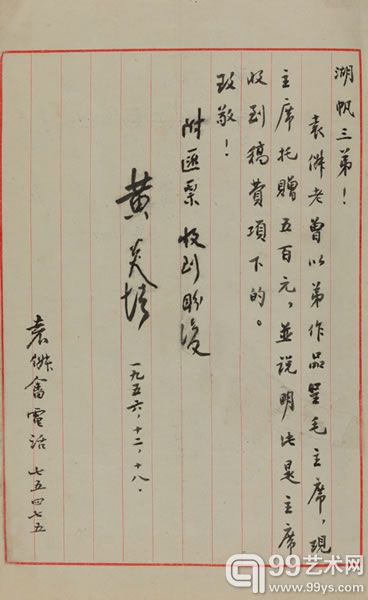 湖帆三弟！
袁傑老曾以弟作品呈毛主席，現
主席托贈五百元，並説明此是主席
收到稿費項下的。
致敬！
附匯票 收到盼復
黄炎培
一九五六，十二，十八．
袁傑畬電话 七五四七五
99艺术网
www.99ys.com